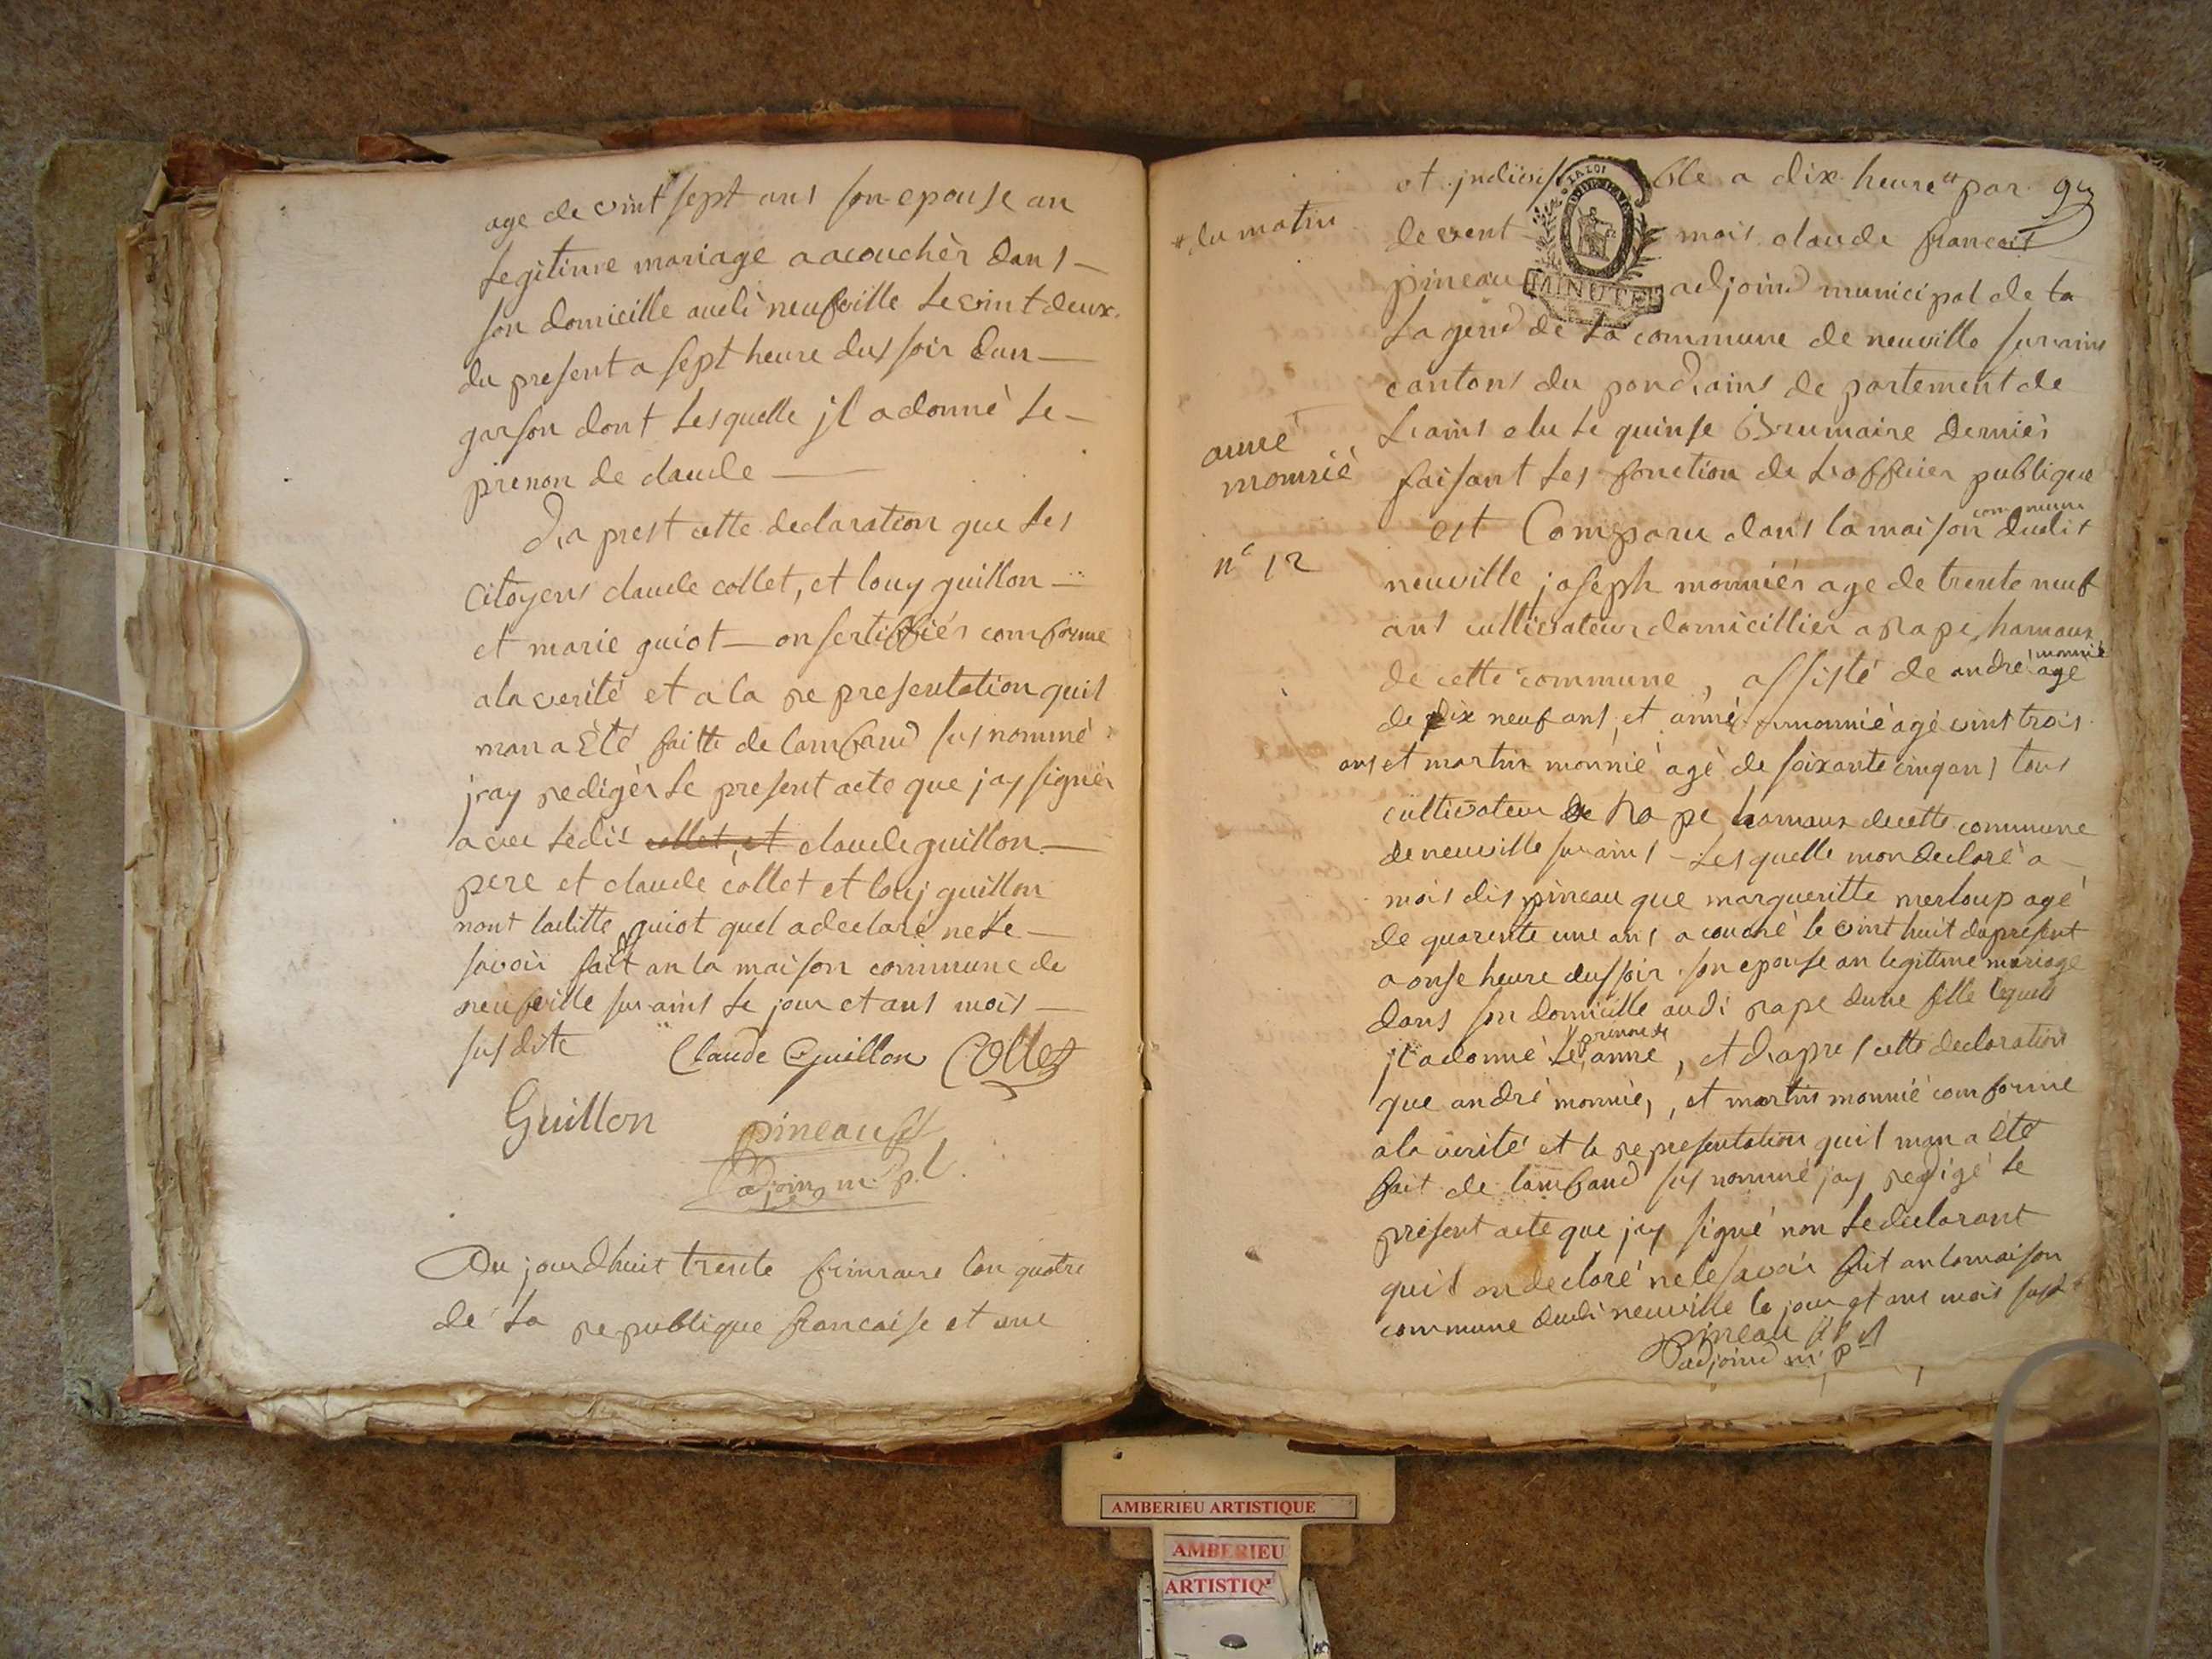 age de vint sept ans son epouse an
legitime mariage a acouchèr dans
son domicille audi neufville le vint deux
du present a sept heure dus soir d'un
garson dont lesquelle jl a donné le
prenon de claude
d'aprest cette declaration que les
citoyens claude collet, et louy guillon
et marie guiot on sertiffiér comforme
a la verité et a la representation quil
man a Été faitte de lamfand sus nommé
j'ay redigèr le present acte que jay signér
avec ledit collet, et claude guillon
pere et claude collet et louj guillon
nont laditte guiot quel a declaré ne le
savoir fait an la maison commune de
neufville sur ains le jour et ans mois
susdite Claude Guillon Collet
Guillon pineau
adjoin m. p.l
Du jourdhuit trente frimaire lan quatre
de la republique francaise et une
et jndivisible a dix heure par
* du matin
devent mois claude francois
pineau adjoind municipal de la
MINUTE
lagend de la commune de neuville sur ains
cantons du pond'ains de partement de
l'ains elu le quinse Brumaire derniér
anne
monnié
faisant les fonction de l'officier publique
est Comparu dans la maison commune dudit
n° 12
neuville joseph monniér age de trente neuf
ans cultivateur domicillier a rape hamaux
de cette commune, assisté de andré monnié age
de dix neuf ans, et anne monnié agé vint trois
ans et martin monnié agè de soixante cinq ans tous
cultivateur de Rape hamaux de cette commune
de neuville sur ains les quelle mon declaré a
mois dis pineau que margueritte merloup agé
de quarente une ans a couché le vint huit du present
a onse heure dus soir son epouse an legitime mariage
dans son domicille audi rape dune fille lequelle
jl a donné le prenon de anne, et d'apres cette declaration
que andré monnié, et martin monnié comforme
a la verité et la representation quil man a été
fait de lamfand sus nommé jay redigé le
present acte que jay signé non le declarant
quil on declaré ne le savoir fait an la maison
commune dudi neuville le jour et ans mois susd
pineau
adjoind m. p
AMBERIEU ARTISTIQUE
AMBERIEU
ARTISTIQ